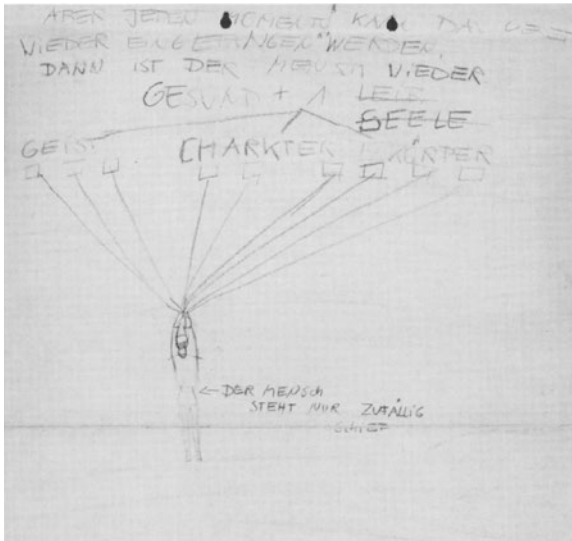 ABER JEDEN MOMENT KANN DAS
WIEDER EINGEFANGEN WERDEN.
DANN IST DER MENSCH WIEDER
GESUND + 1 LEIB
SEELE
GEIST CHARKTER KÖRPER
← DER MENSCH
STEHT NUR ZUFÄLLIG
SCHIEF